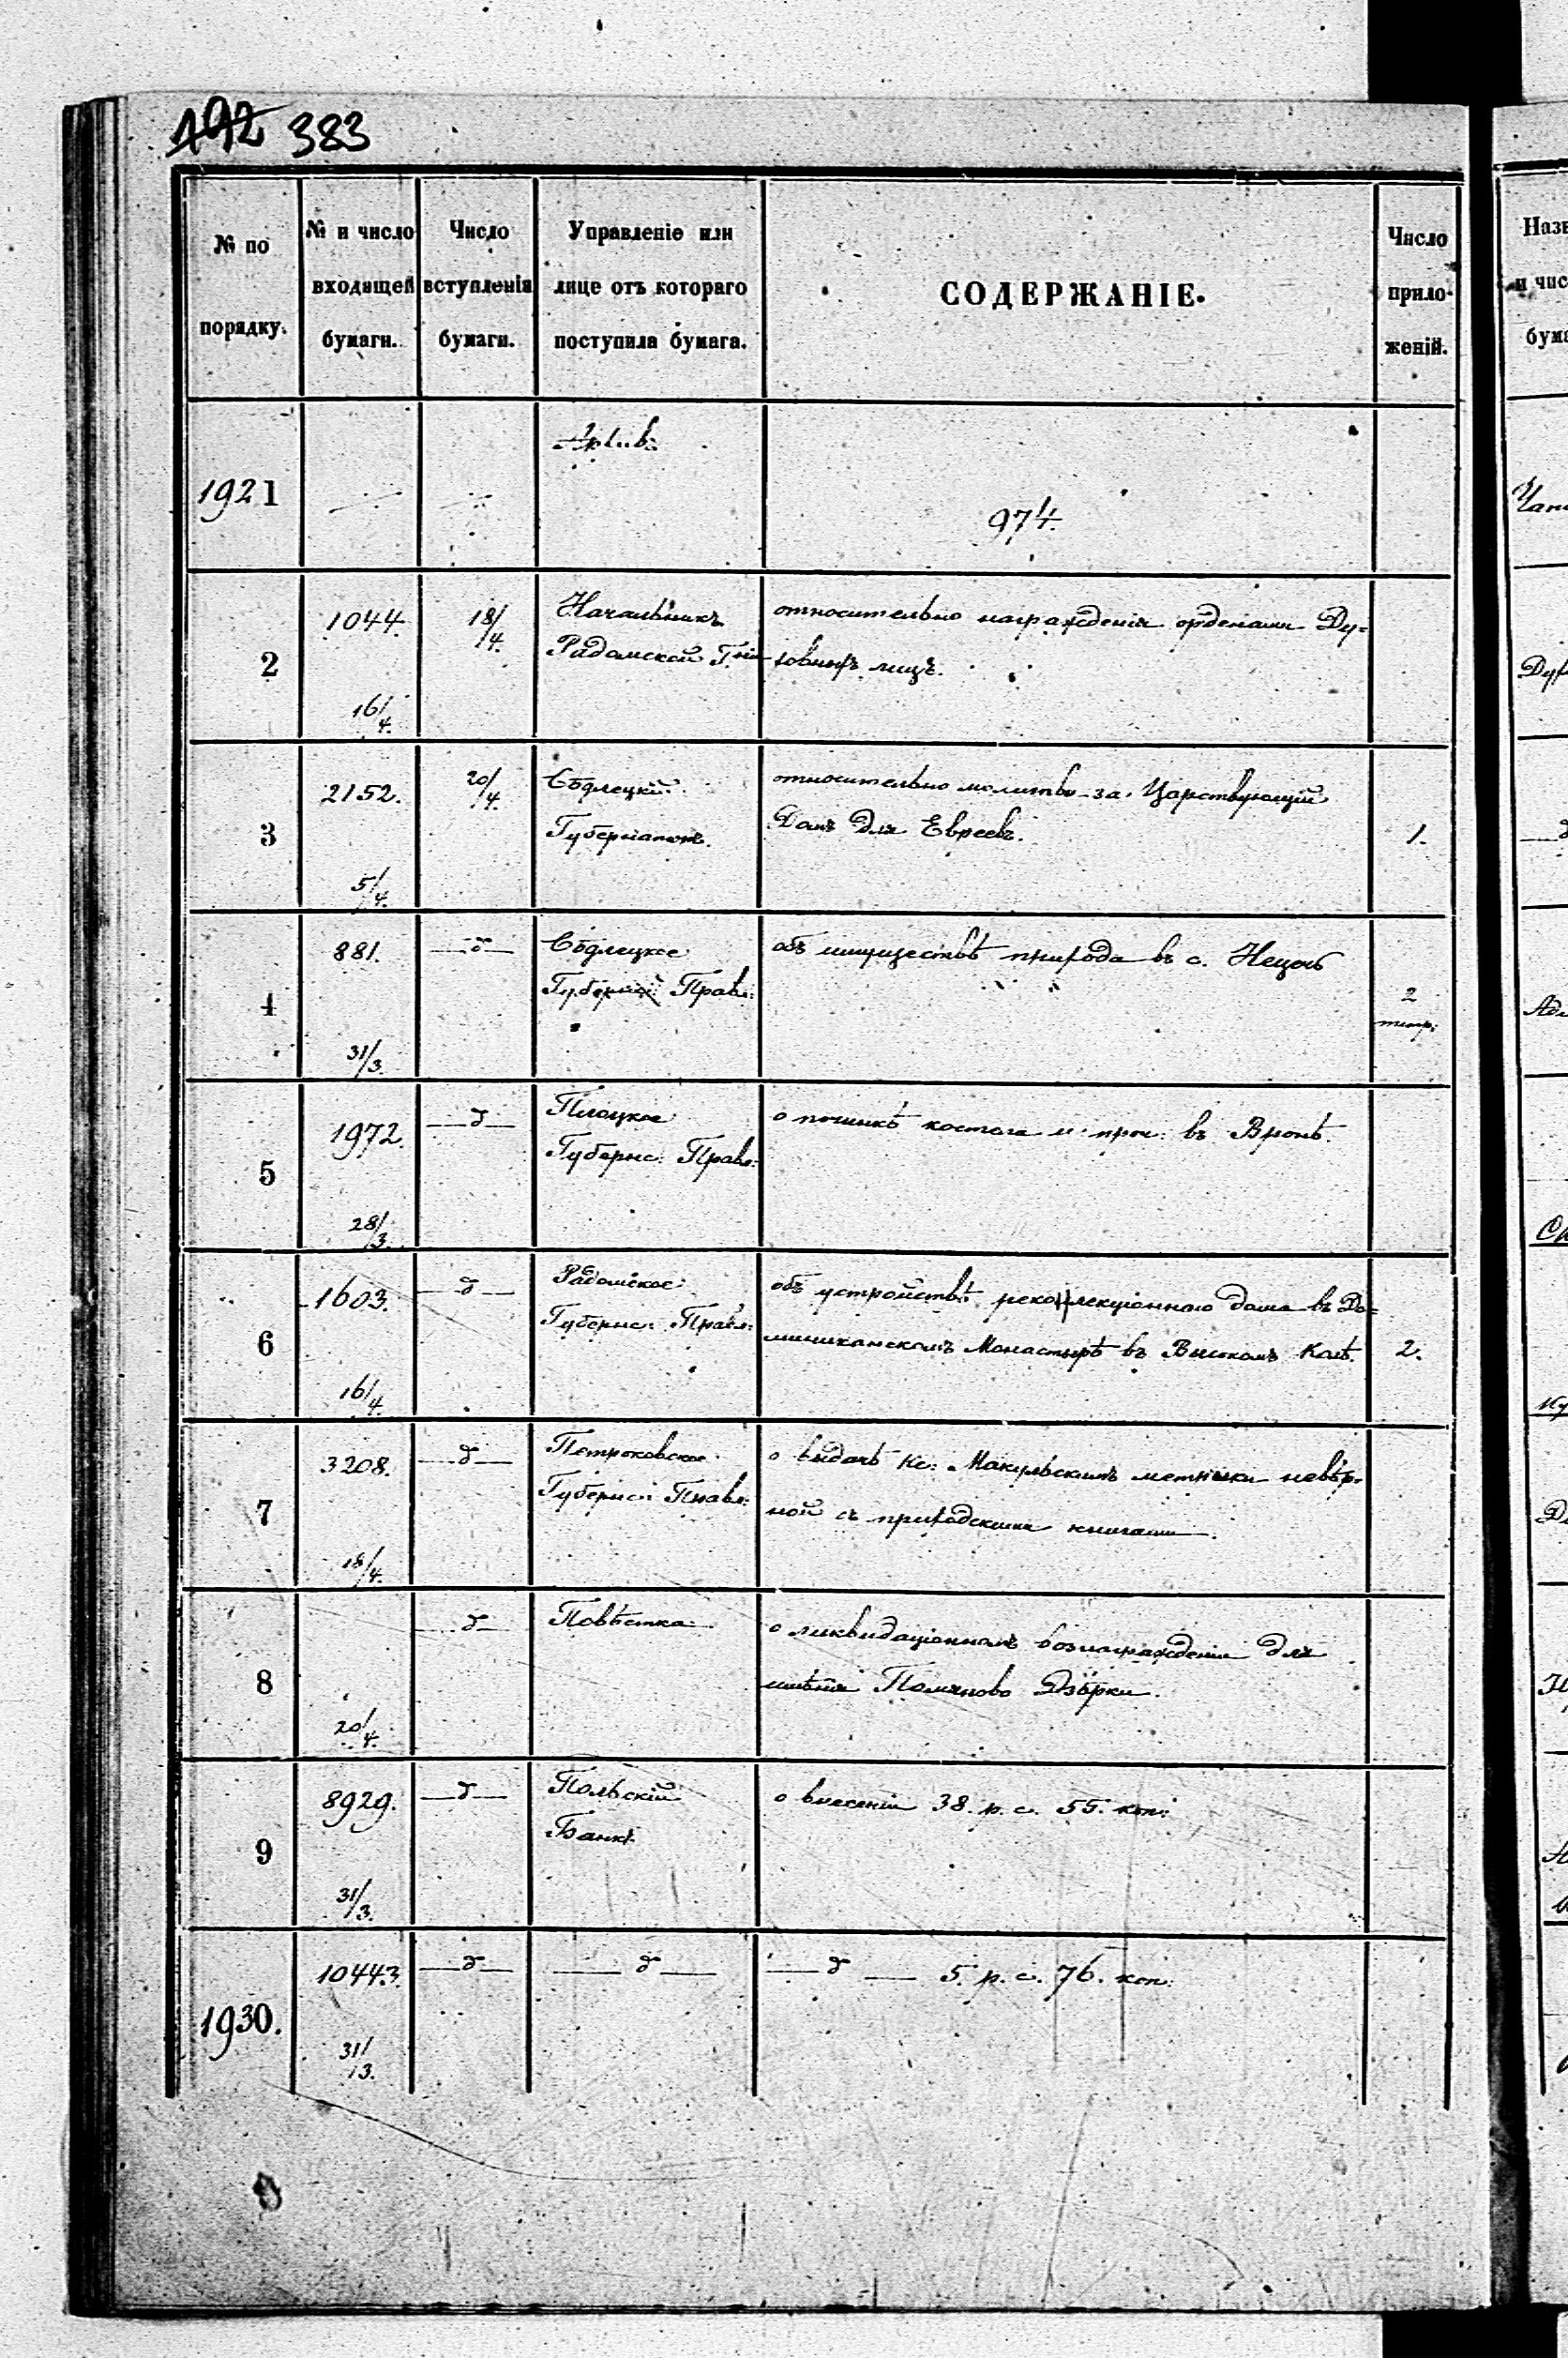 192 383
№ по порядку.
№ и число входящей бумаги.
Число вступленія бумаги.
Управленіе или лице отъ котораго поступила бумага.
СОДЕРЖАНІЕ.
Число приложеній.
1921
974.
2 1044. 16/4. 18/4.
Начальникъ
Радомской
относительно награжденія орденами Ду=
ховныхъ лицъ.
3 2152. 5/4. 20/4.
Сѣдлецкій
Губернаторъ.
относительно молитвъ за Царствующій
Домъ для Евреевъ.
1.
4 881. 31/3. —d—
Сѣдлецкое
Губернс: Правл:
объ имуществѣ прихода въ с.
2
5 1972. 28/3. —d—
Плоцкое
Губернс: Правл:
о починкѣ костела и проч: въ Вронѣ.
6 1603. 16/4. —d—
Радомское
Губернс: Правл:
объ устройствѣ реколлекціоннаго дома въ До=
миниканскомъ Монастырѣ въ Высокомъ Колѣ.
2.
7 3208. 18/4. —d—
Петроковское
Губернс: Правл:
о выдачѣ Кс: Макульскимъ метрики невѣр-
ной съ приходскими книгами.
8 20/4. —d—
Повѣстка
о ликвидаціонномъ вознагражденіи для
имѣнія Помяново Дзѣрки.
9 8929. 31/3. —d—
Польскій
Банкъ
о внесеніи 38. р. с. 55. коп:
1930. 10443. 31/3. —d—
— d —
— d — 5. р. с. 76. коп:
Назв
и чис
бума